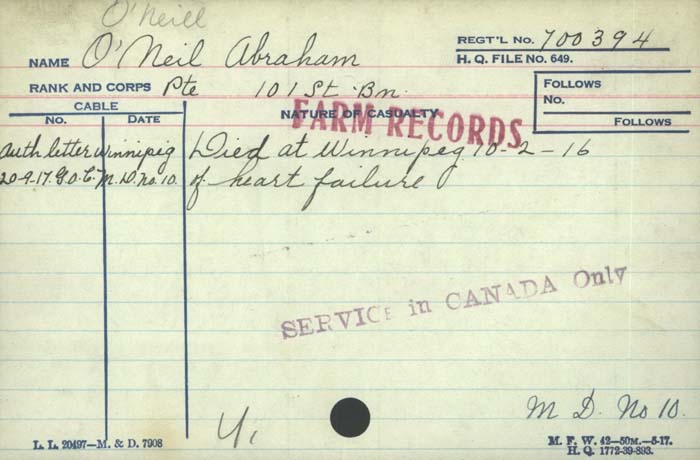 O'Neill
NAME O'Neil Abraham
REGT'L No. 700394
H. Q. FILE No. 649.
RANK AND CORPS Pte 101st Bn.
FOLLOWS
No.
FOLLOWS
CABLE
No. DATE
NATURE OF CASUALTY
FARM RECORDS
Auth letter Winnipeg Died at Winnipeg 10-2-16
20-9-17. G.O.C. M.D. No. 10. of heart failure
SERVICE in CANADA Only
M. D. No 10.
L. L. 20497—M. & D. 7908
M. F. W. 42—50M.—5-17.
H. Q. 1772-39-893.